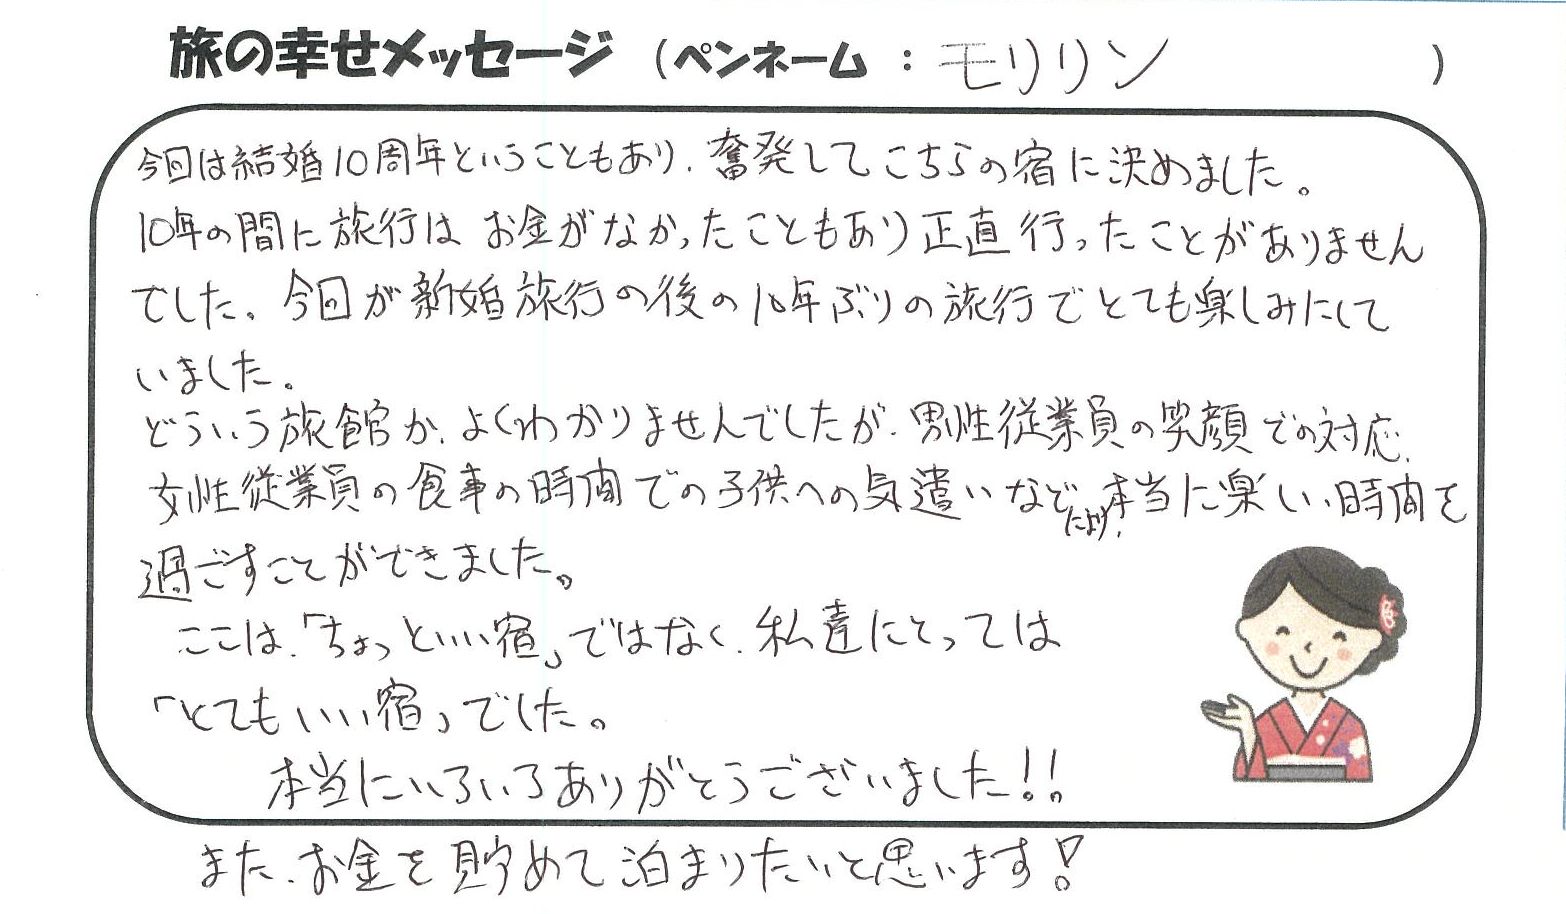 旅の幸せメッセージ （ペンネーム ： モリリン ）
今回は結婚10周年ということもあり、奮発してこちらの宿に決めました。
10年の間に旅行は お金がなかったこともあり正直行ったことがありません
でした。今回が新婚旅行の後の10年ぶりの旅行でとても楽しみにして
いました。
どういう旅館か、よくわかりませんでしたが、男性従業員の笑顔での対応、
女性従業員の食事の時間での子供への気遣いなどにより、本当に楽しい時間を
過ごすことができました。
ここは、「ちょっといい宿」ではなく、私達にとっては
「とてもいい宿」でした。
本当にいろいろありがとうございました!!
また、お金を貯めて泊まりたいと思います!